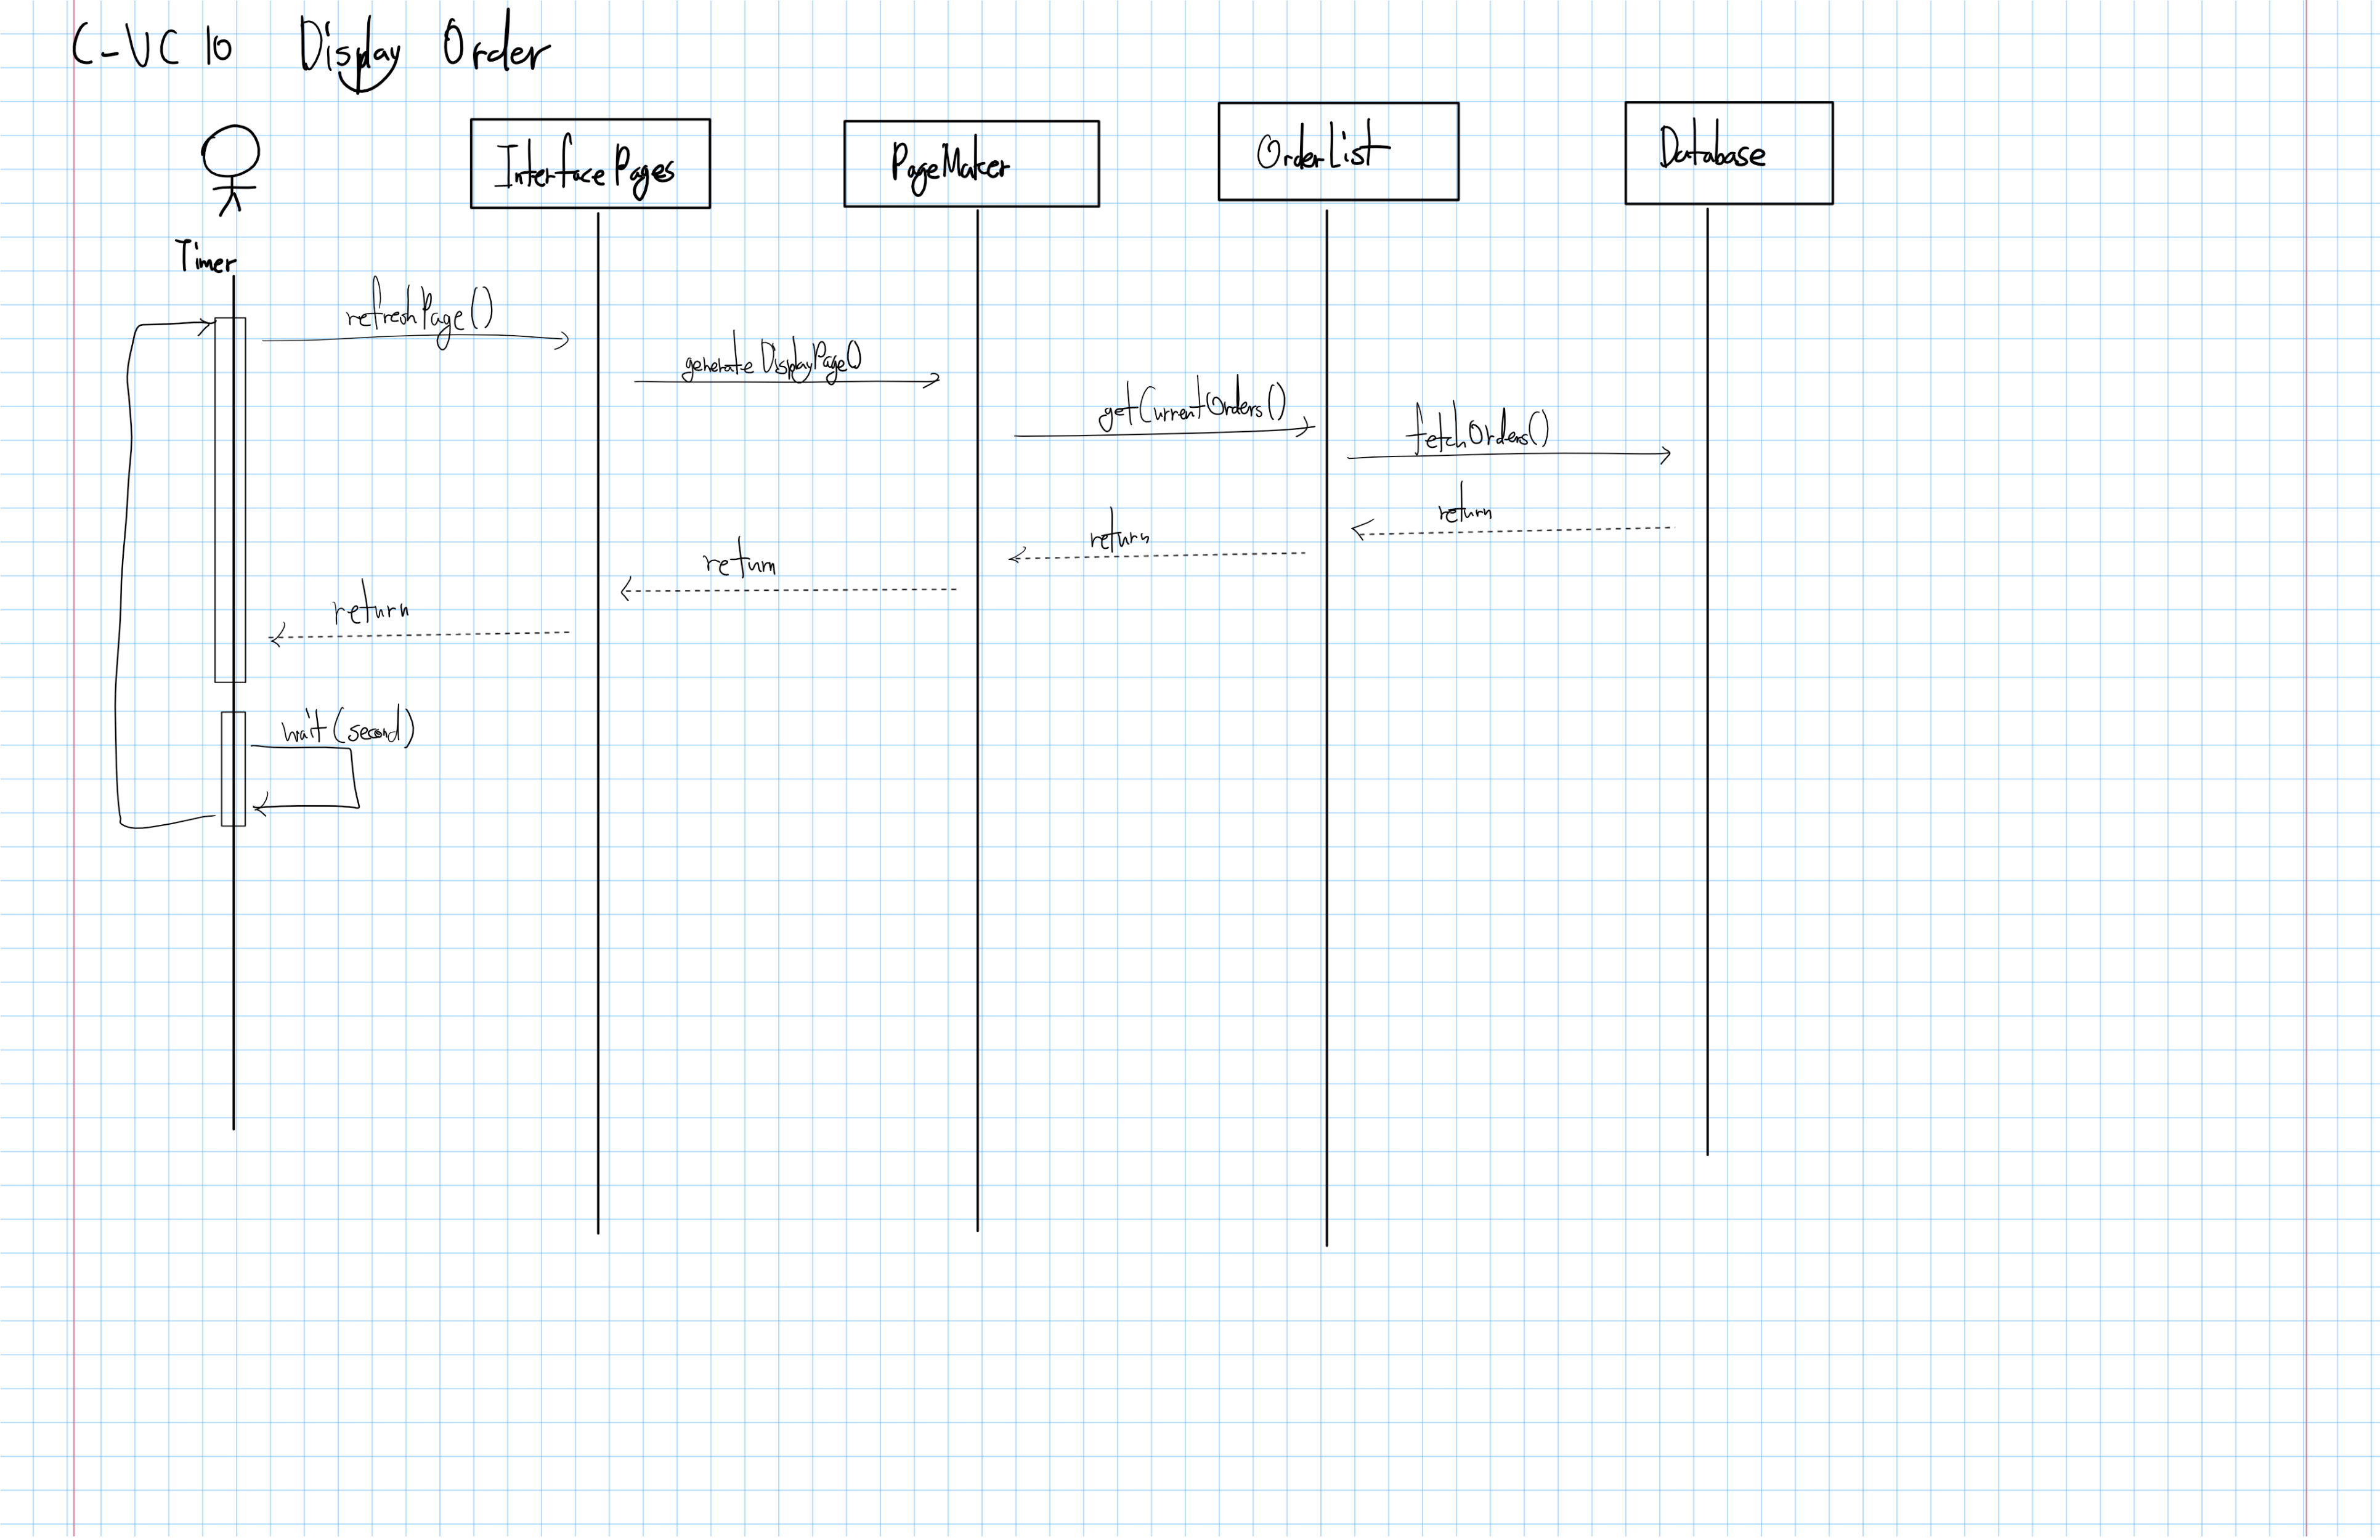 C-UC 10 Display Order
Timer
InterfacePages
PageMaker
OrderList
Database
refreshPage()
generateDisplayPage()
getCurrentOrders()
fetchOrders()
return
return
return
return
wait(second)